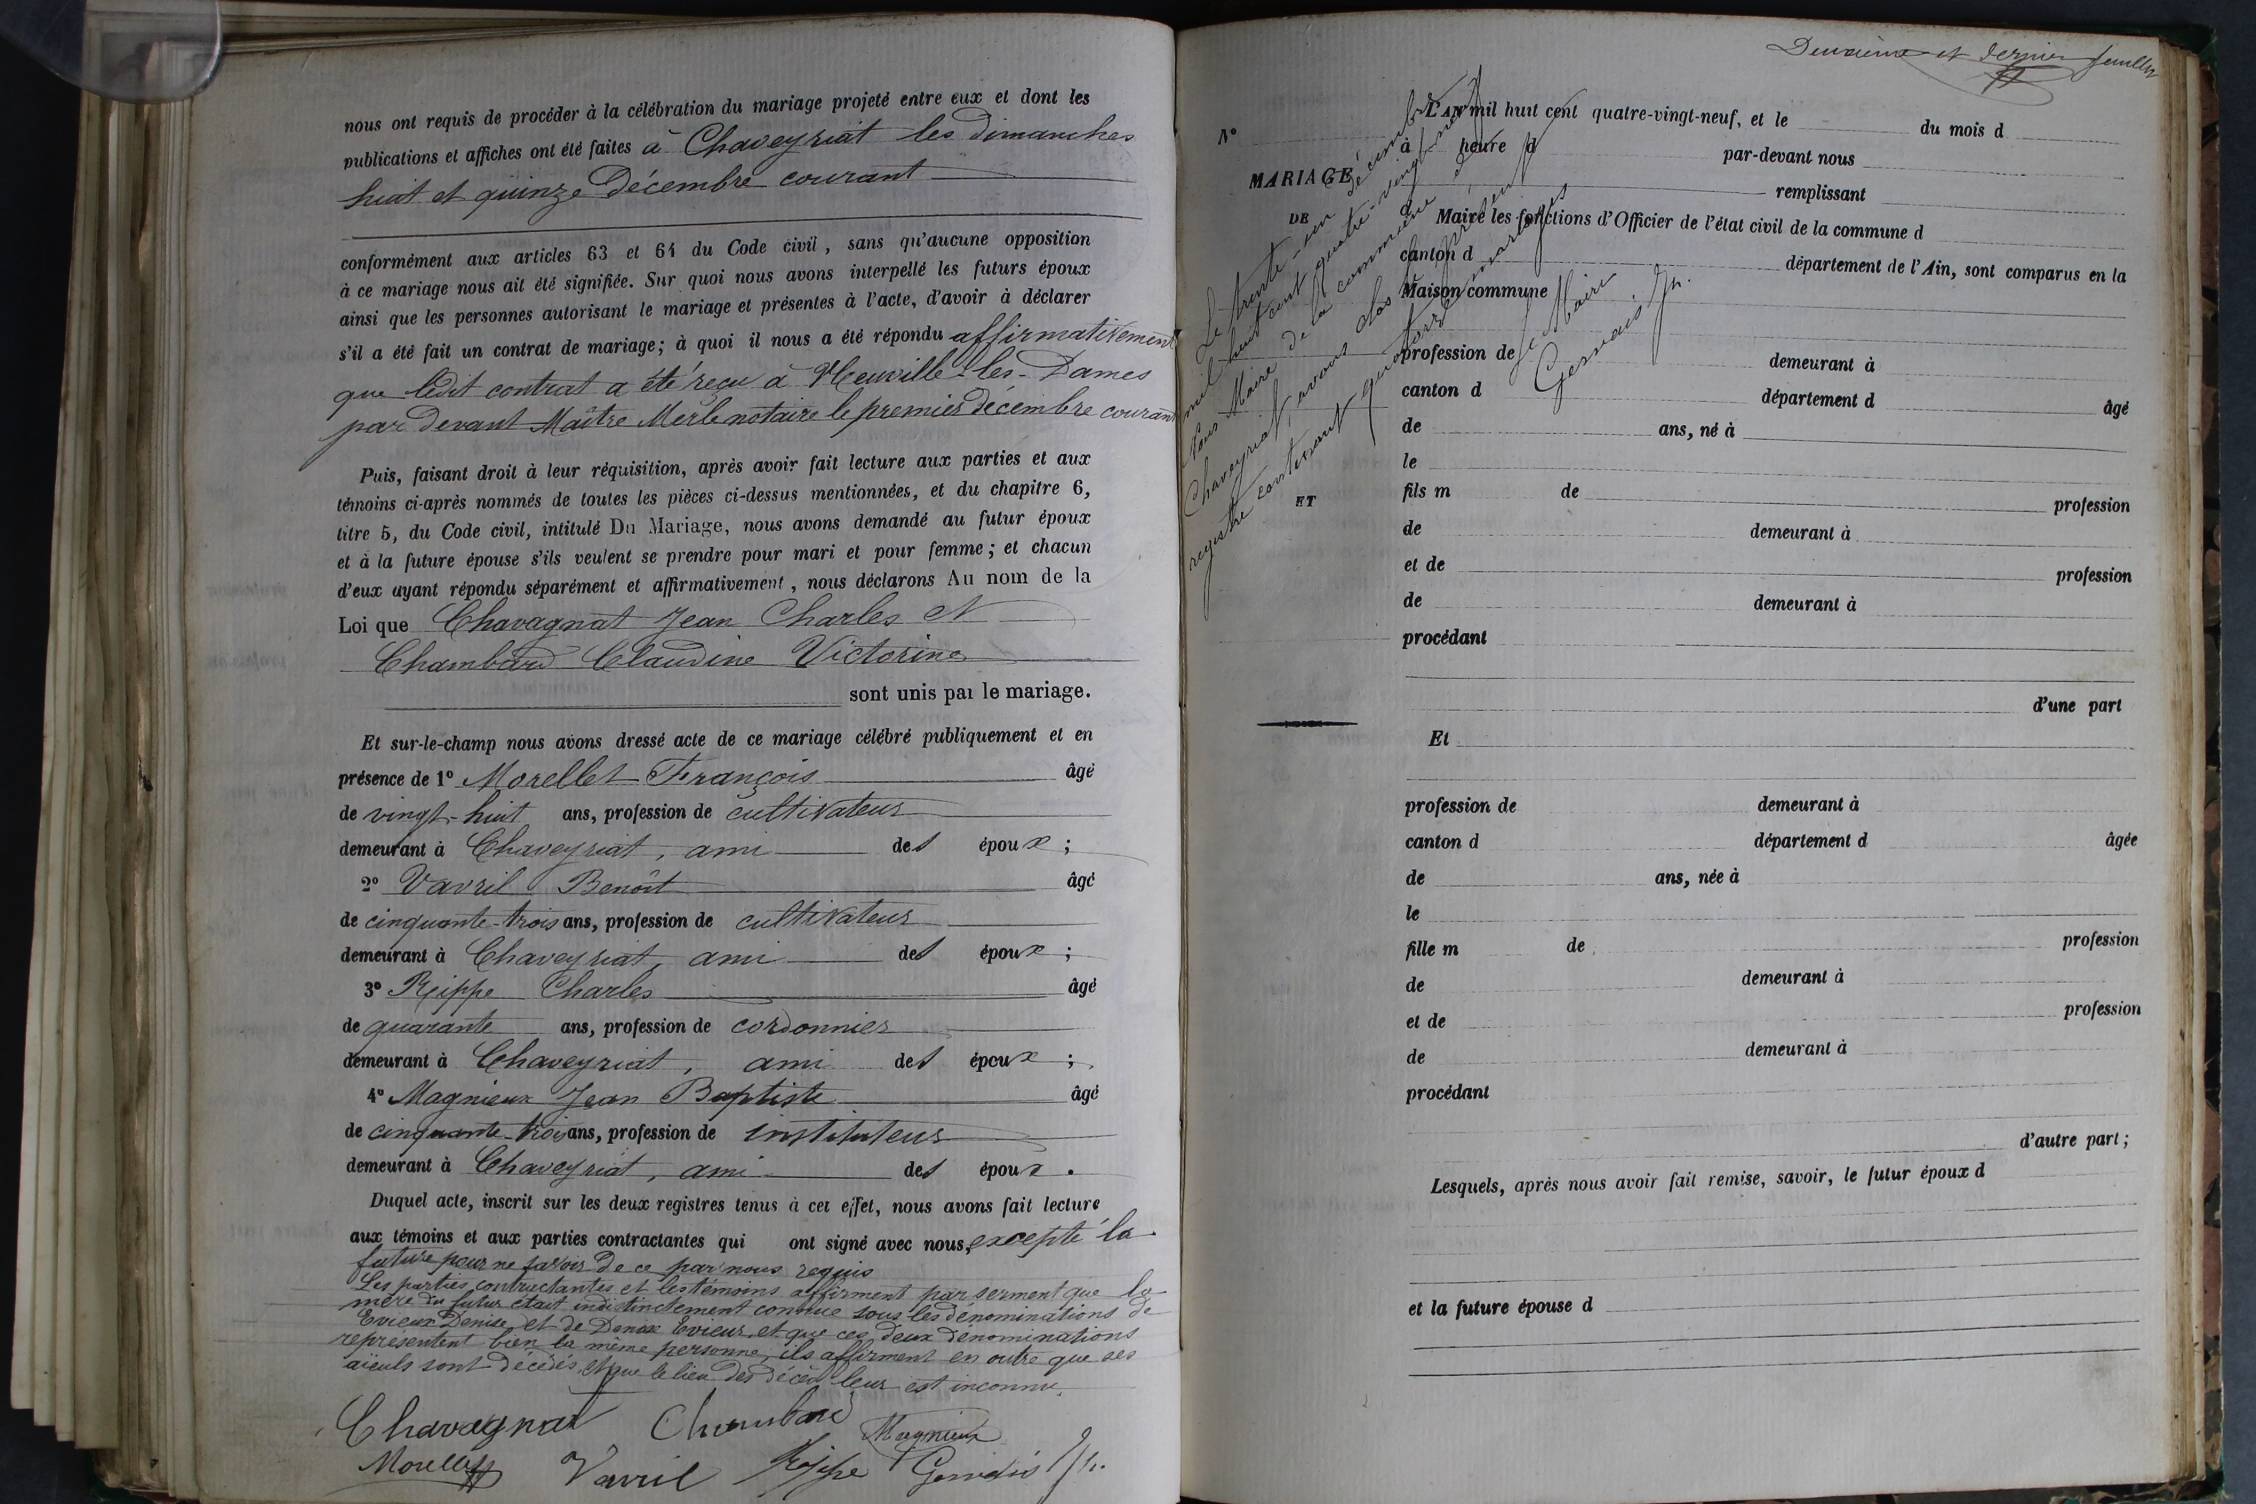 nous ont requis de procéder à la célébration du mariage projeté entre eux et dont les
publications et affiches ont été faites à Chaveyriat les dimanches
huit et quinze Décembre courant
conformément aux articles 63 et 64 du Code civil, sans qu'aucune opposition
à ce mariage nous ait été signifiée. Sur quoi nous avons interpellé les futurs époux
ainsi que les personnes autorisant le mariage et présentes à l'acte, d'avoir à déclarer
s'il a été fait un contrat de mariage; à quoi il nous a été répondu affirmativement
que ledit contrat a été reçu à Neuville-les-Dames
par devant Maître Merle notaire le premier décembre courant
Puis, faisant droit à leur réquisition, après avoir fait lecture aux parties et aux
témoins ci-après nommés de toutes les pièces ci-dessus mentionnées, et du chapitre 6,
titre 5, du Code civil, intitulé Du Mariage, nous avons demandé au futur époux
et à la future épouse s'ils veulent se prendre pour mari et pour femme; et chacun
d'eux ayant répondu séparément et affirmativement, nous déclarons Au nom de la
Loi que Chavagnat Jean Charles et
Chambard Claudine Victorine
sont unis par le mariage.
Et sur-le-champ nous avons dressé acte de ce mariage célébré publiquement et en
présence de 1° Morellet François âgé
de vingt-huit ans, profession de cultivateur
demeurant à Chaveyriat, ami des époux;
2° Vavril Benoît âgé
de cinquante-trois ans, profession de cultivateur
demeurant à Chaveyriat, ami des époux;
3° Reippe Charles âgé
de quarante ans, profession de cordonnier
demeurant à Chaveyriat, ami des époux;
4° Magnieux Jean Baptiste âgé
de cinquante-trois ans, profession de instituteur
demeurant à Chaveyriat, ami des époux.
Duquel acte, inscrit sur les deux registres tenus à cet effet, nous avons fait lecture
aux témoins et aux parties contractantes qui ont signé avec nous, excepté la
future pour ne savoir de ce par nous requis
Les parties contractantes et les témoins affirment par serment que la
mère du futur était indistinctement connue sous les dénominations de
Evieux Denise et de Denise Evieux, et que ces deux dénominations
représentent bien la même personne, ils affirment en outre que ses
aïeuls sont décédés et que le lieu des décès leur est inconnu.
Chavagnat Chambard Magnieux
Morellet Vavril Reippe Gervais Jh.
Deuxième et dernier feuillet
Le trente-un décembre
mil huit cent quatre-vingt-neuf
Nous Maire de la commune de
Chaveyriat, avons clos le présent
registre contenant quatorze mariages
Le Maire
Gervais Jh.
N°
MARIAGE
DE
ET
L'AN mil huit cent quatre-vingt-neuf, et le du mois d
à heure d par-devant nous
remplissant
d Maire les fonctions d'Officier de l'état civil de la commune d
canton d département de l'Ain, sont comparus en la
Maison commune
profession de demeurant à
canton d département d âgé
de ans, né à
le
fils m de profession
de demeurant à
et de profession
de demeurant à
procédant
d'une part
Et
profession de demeurant à
canton d département d âgée
de ans, née à
le
fille m de profession
de demeurant à
et de profession
de demeurant à
procédant
d'autre part;
Lesquels, après nous avoir fait remise, savoir, le futur époux d
et la future épouse d